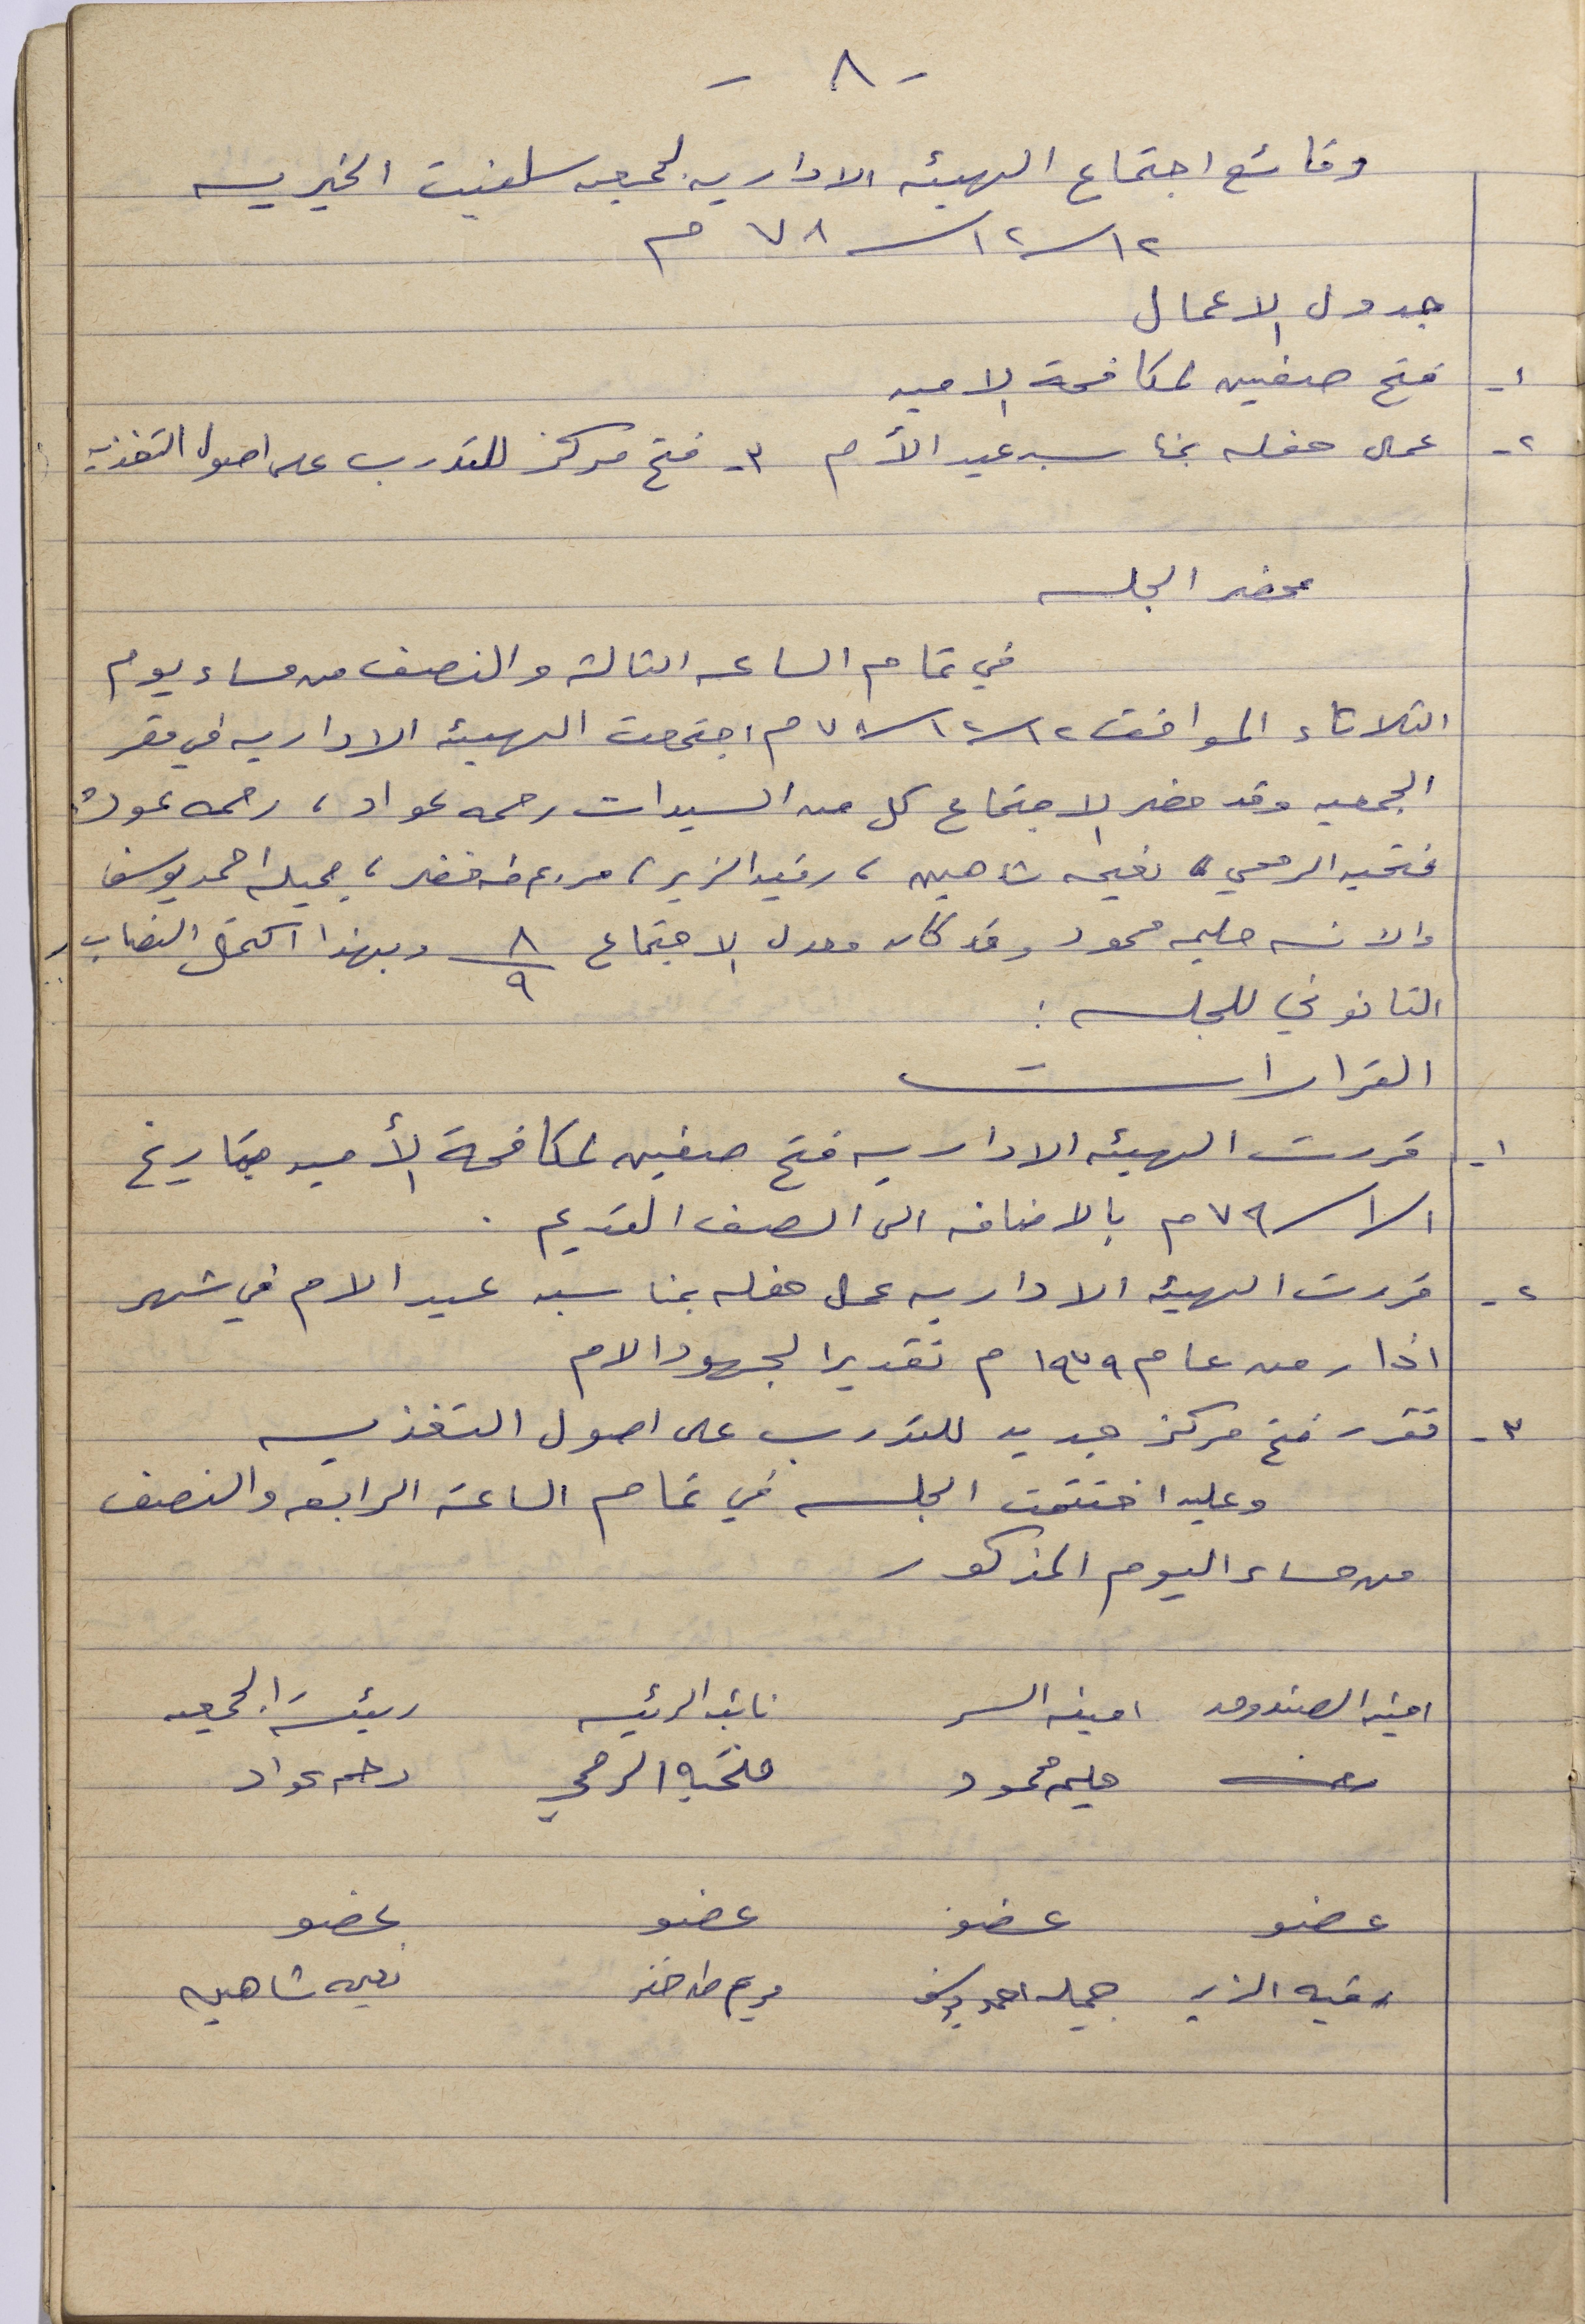 - ٨ -
وقائع اجتماع الهيئه الاداريه لجمعيه سلفيت الخيريه
١٢/١٢/٧٨ م
جدول الاعمال
١- فتح صفين لمكافحة الاميه
٢- عمل حفله بمناسبه عيد الأم ٣- فتح مركز للتدرب على اصول التغذيه
محضر الجلسه
في تمام الساعه الثالثه والنصف من مساء يوم
الثلاثاء الموافق ١٢/١٢/٧٨ م اجتمعت الهيئه الاداريه في مقر
الجمعيه وقد حضر الاجتماع كل من السيدات رحمه عواد ، رحمه عوده
فتحيه الرمحي ، نعيمه شاهين ، رقيه الزير ، مريم طه خضر ، جميله احمد يوسف
والانسه حليمه محمود وقد كان معدل الاجتماع ٨/٩ وبهذا اكتمل النصاب
القانوني للجلسه :
القرارات
١- قررت الهيئه الاداريه فتح صفين لمكافحة الأميه بتاريخ
١/١/٧٩ م بالاضافه الى الصف القديم .
٢- قررت الهيئه الاداريه عمل حفله بمناسبه عيد الام في شهر
اذار من عام ١٩٧٩ م تقديرا لجهود الام
٣- تقرر فتح مركز جديد للتدرب على اصول التغذيه
وعليه اختتمت الجلسه في تمام الساعه الرابعه والنصف
من مساء اليوم المذكور
امينه الصندوق امينه السر نائبه الرئيسه رئيسة الجمعيه
حليمه محمود فتحيه الرمحي رحمه عواد
عضو عضو عضو عضو
رقيه الزير جميله احمد يوسف مريم طه خضر نعيمه شاهين